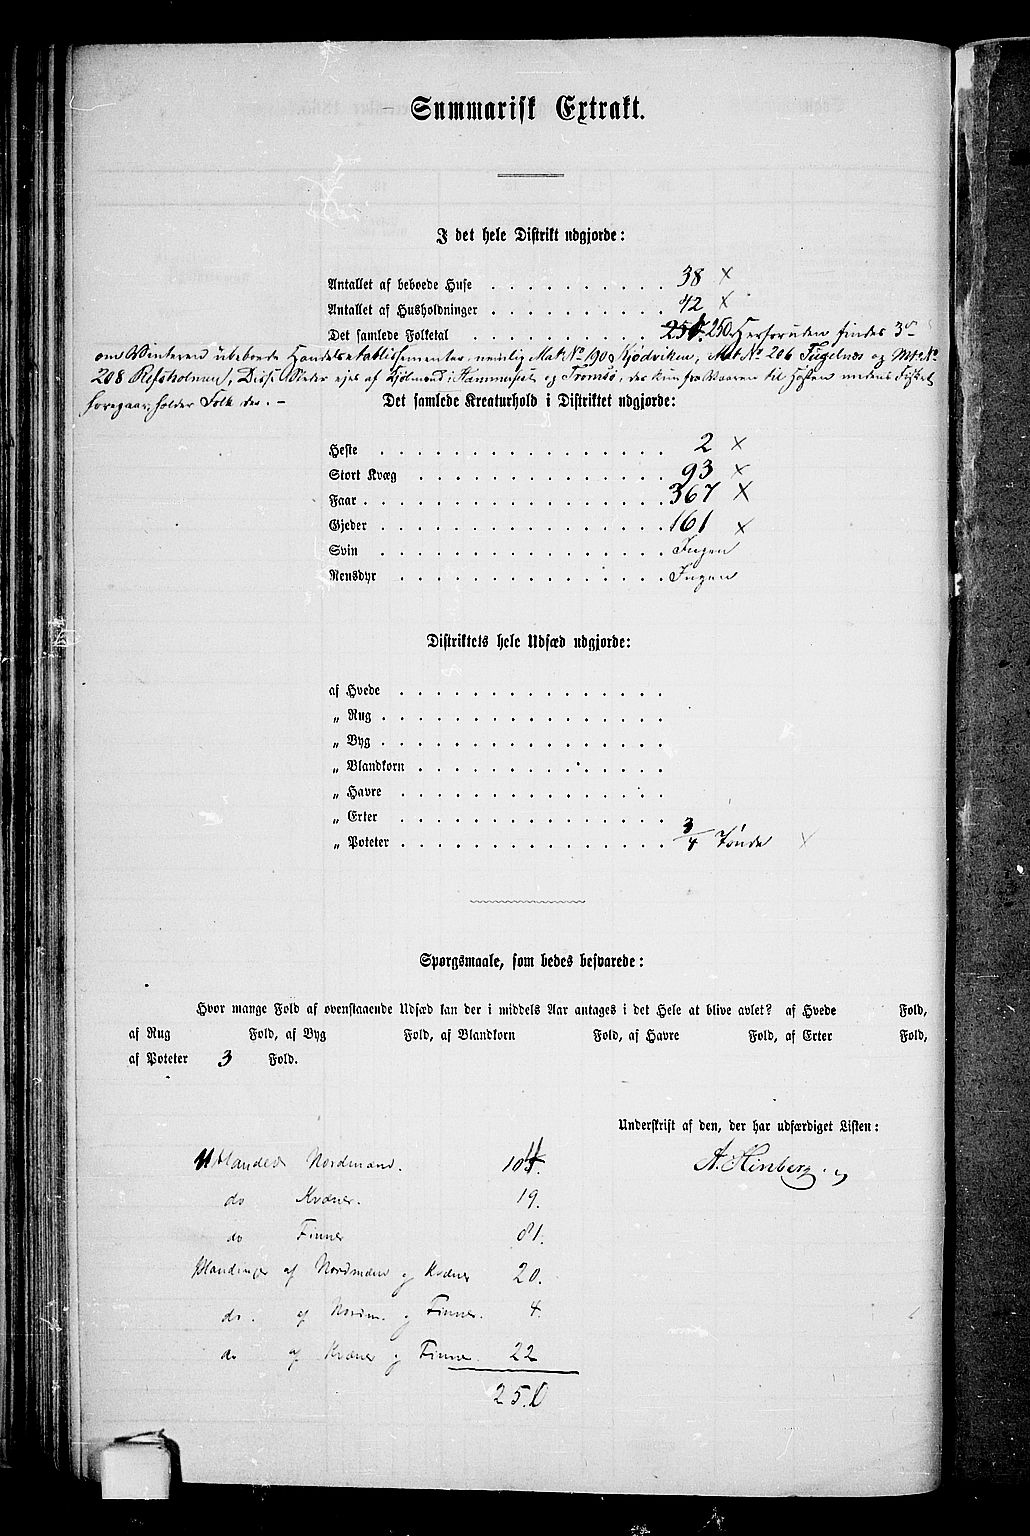 Summarisk Extrakt.
I det hele Distrikt udgjorde:
Antallet af beboede Huse . . . . . . . . . . 38 ×
Antallet af Husholdninger . . . . . . . . . . 42 ×
Det samlede Folketal . . . . . . . . . . 251. 250. Herforuden findes 3de
om Vinteren ubeboede Handelsetablissementer, nemlig Mat. No 190 Kjödviken, Mat. No 206 Fuglenæs og Mt. No
208 Refsholmen, Disse Steder ejes af Kjöbmænd i Hammerfest og Tromsø, der kun fra Vaaren til Hösten medens Fiskeri
foregaar, holder Folk der. –
Det samlede Kreaturhold i Distriktet udgjorde:
Heste . . . . . . . . . . 2 ×
Stort Kvæg . . . . . . . . . . 93 ×
Faar . . . . . . . . . . 367 ×
Gjeder . . . . . . . . . . 161 ×
Svin . . . . . . . . . . Ingen
Rensdyr . . . . . . . . . . Ingen
Distriktets hele Udsæd udgjorde:
af Hvede . . . . . . . . . .
„ Rug . . . . . . . . . .
„ Byg . . . . . . . . . .
„ Blandkorn . . . . . . . . . .
„ Havre . . . . . . . . . .
„ Erter . . . . . . . . . .
„ Poteter . . . . . . . . . . 3/4 Tønde ×
Spørgsmaale, som bedes besvarede:
Hvor mange Fold af ovenstaaende Udsæd kan der i middels Aar antages i det Hele at blive avlet? af Hvede Fold,
af Rug Fold, af Byg Fold, af Blandkorn Fold, af Havre Fold, af Erter Fold,
af Poteter 3 Fold.
Underskrift af den, der har udfærdiget Listen:
A. Hinberg.
Ublandede Nordmænd. 104.
do Kvæner. 19.
do Finner 81.
Blandinger af Nordmænd og Kvæner 20.
do. af Nordm. og Finner. 4.
do af Kvæner og Finner. 22
250